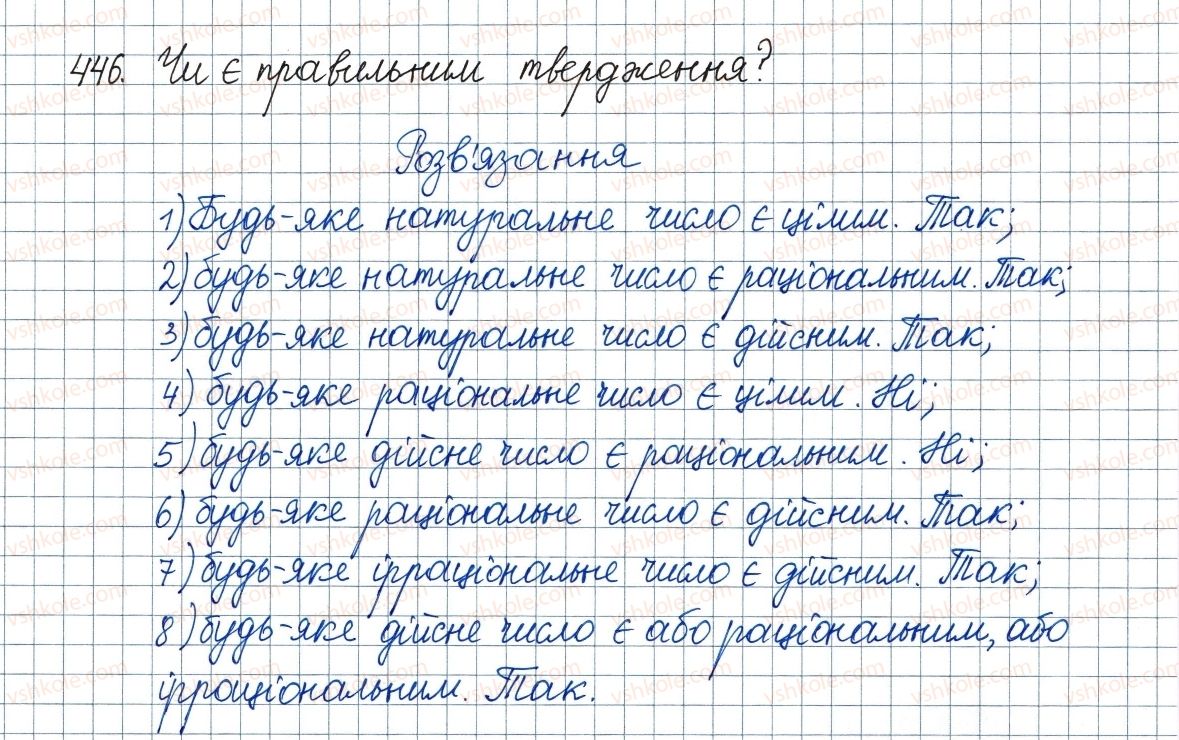 446. Чи є правильним твердження?
Розв'язання
1) Будь-яке натуральне число є цілим. Так;
2) будь-яке натуральне число є раціональним. Так;
3) будь-яке натуральне число є дійсним. Так;
4) будь-яке раціональне число є цілим. Ні;
5) будь-яке дійсне число є раціональним. Ні;
6) будь-яке раціональне число є дійсним. Так;
7) будь-яке ірраціональне число є дійсним. Так;
8) будь-яке дійсне число є або раціональним, або
ірраціональним. Так.